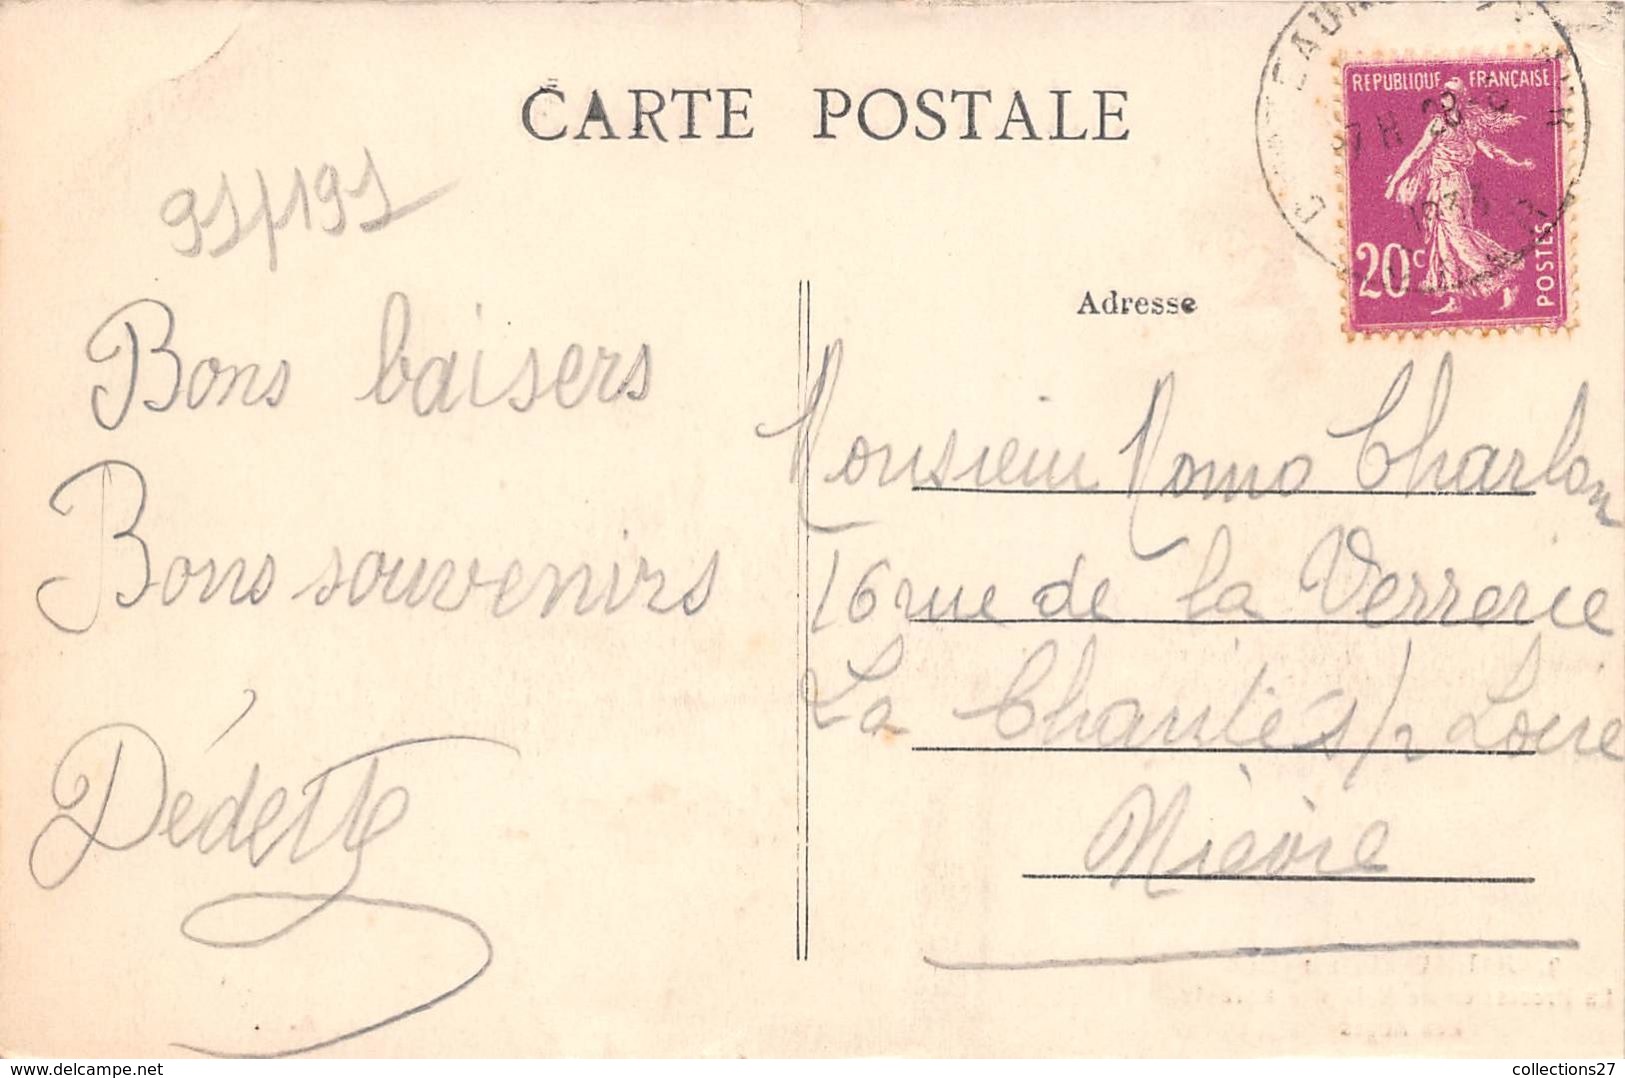 CARTE POSTALE
REPUBLIQUE FRANÇAISE
20c
POSTES
Adresse
Bons baisers
Bons souvenirs
Dédette
Monsieur Momo Charlon
16 rue de la Verrerie
La Charité s/r Loire
Nièvre
delcampe.net
collections27